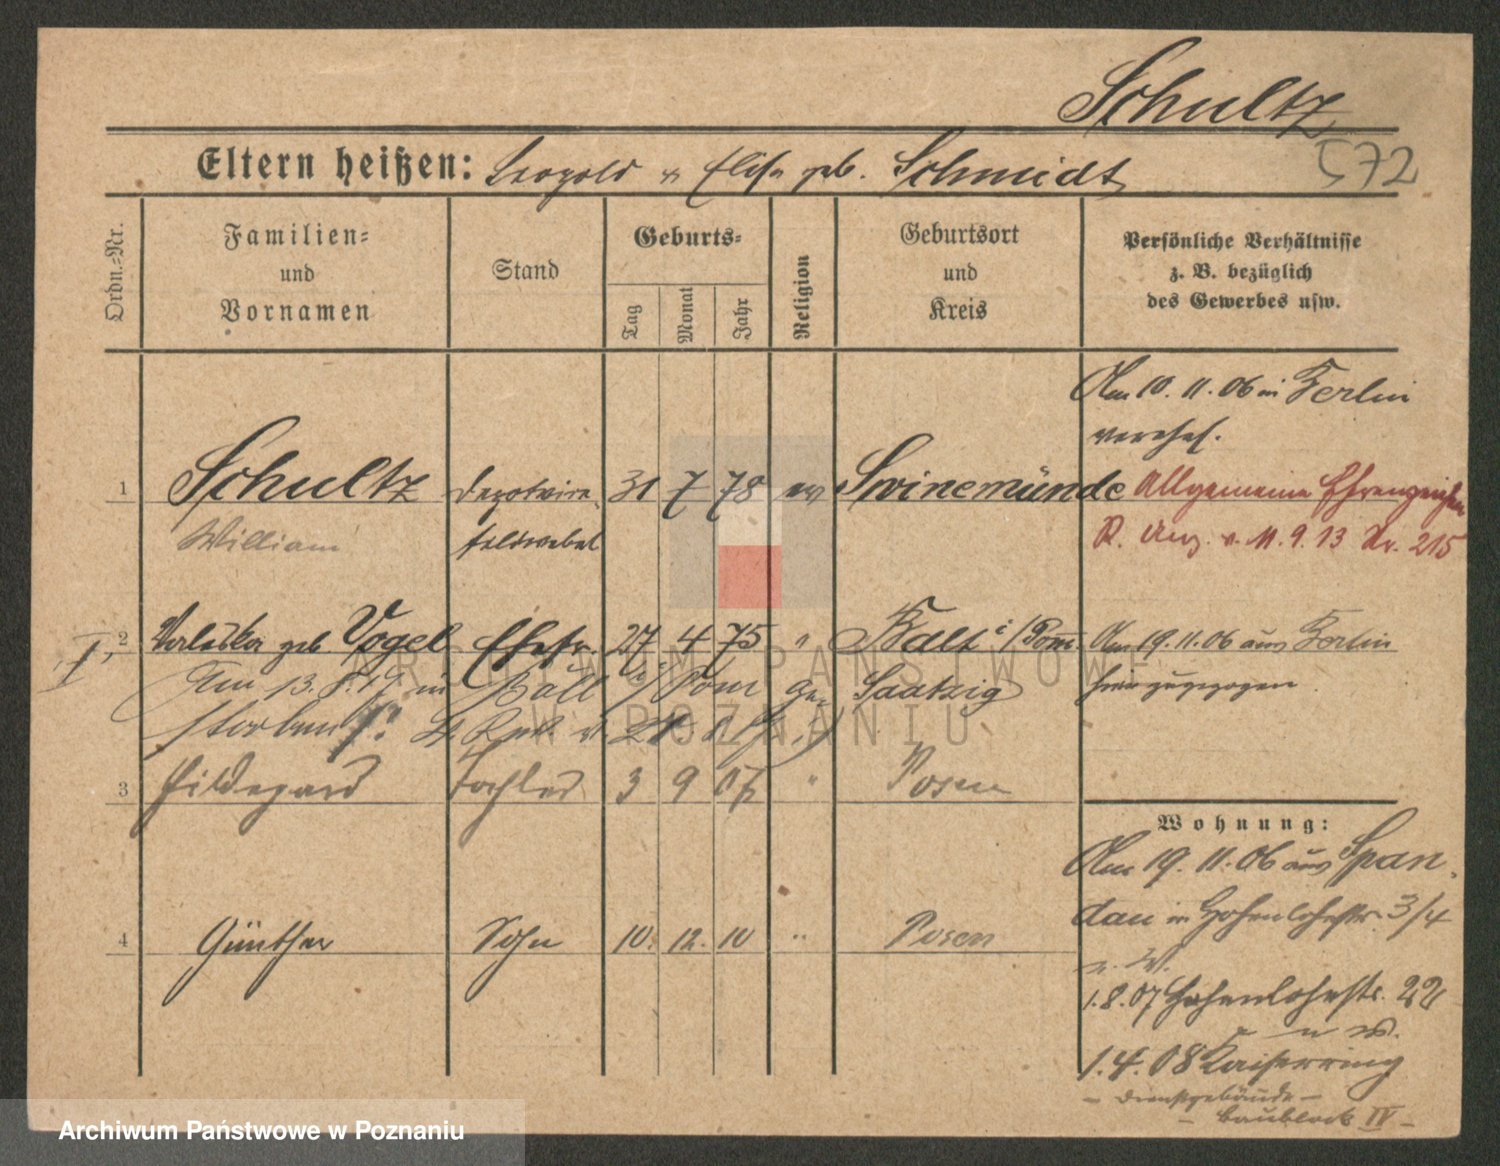 Schultz
572
Eltern heißen: Leopold u Elise geb. Schmidt
Ordn.=Nr.
Familien=
und
Vornamen
Stand
Geburts=
Tag
Monat
Jahr
Religion
Geburtsort
und
Kreis
Persönliche Verhältnisse
z. B. bezüglich
des Gewerbes usw.
Am 10. 11. 06 in Berlin
verehel.
1 Schultz Depotvize 31 7 78 ev Swinemünde
William feldwebel
Allgemeine Ehrenzeichen
R. Anz. v. 11. 9. 13 Nr. 215
I, 2 Valeska geb Vogel Ehefr. 27. 4 75 " Ball i/Pom.
Saatzig
Am 13. 8. 17 in Ball i/Pom ge
storben
Am 19. 11. 06 aus Berlin
hier zugezogen
3 Hildegard Tochter 3 9 07 " Posen
4 Günther Sohn 10. 12. 10 " Posen
Wohnung:
Am 19. 11. 06 aus Span
dau in Hohenlohestr. 3/4
n. W.
1. 8. 07 Hohenlohestr. 22
n W.
1. 4. 08 Kaiserring
- Dienstgebäude -
- Baublock IV -
ARCHIWUM PAŃSTWOWE
W POZNANIU
Archiwum Państwowe w Poznaniu